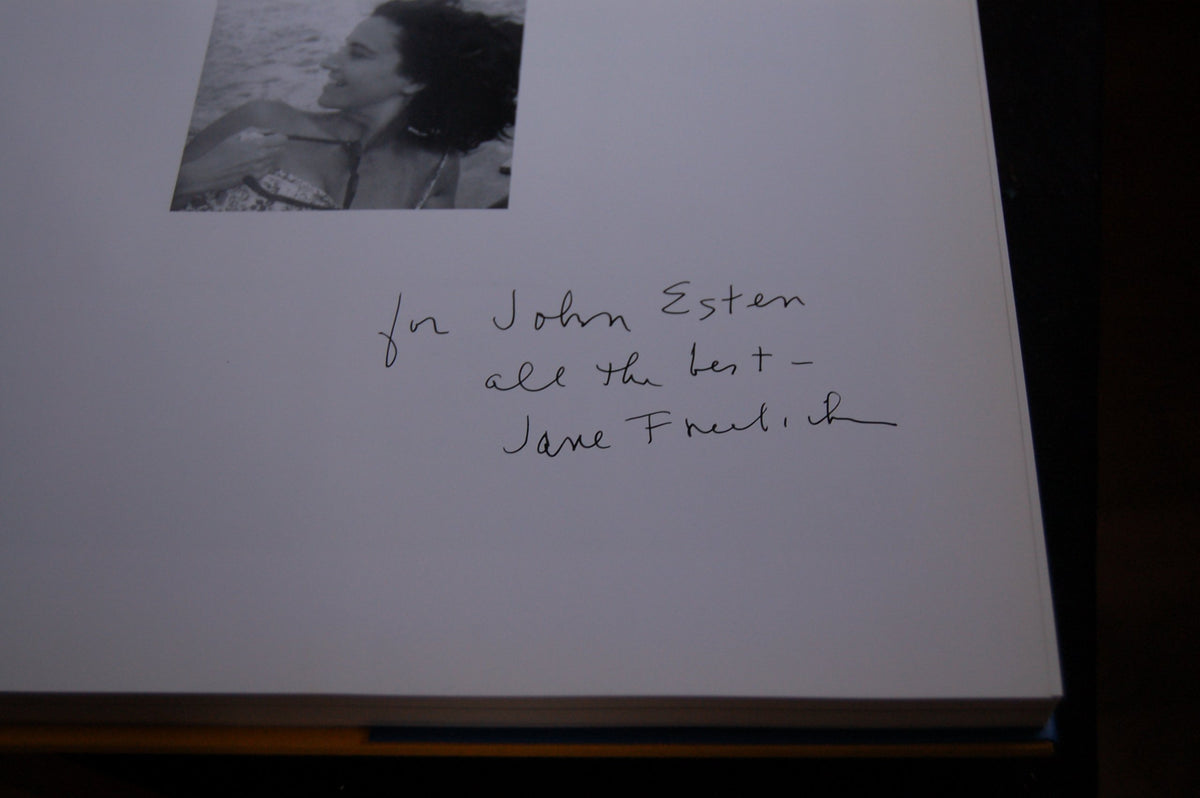 for John Esten
all the best –
Jane Freilich